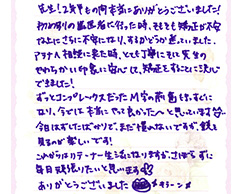 先生!2年半もの間本当にありがとうございました!
初めお別の歯医者に行った時、そもそも矯正が不安
な上にさらに不安になり、するかどうか迷っていました。
アテナへ相談に来た時、とても丁寧に、そして先生の
やわらかい印象に安心して、矯正をすることに決心
できました!
ずっとコンプレックスだったM字の前歯も、すごくキレイに
なり、今では本当にやって良かったへと思っています
今日はずしたばかりで、まだ慣れないですが、鏡を
見るのが楽しいです!
これからはリテーナー生活になりますが、さぼらずに
毎日頑張りたいと思います
ありがとうございました